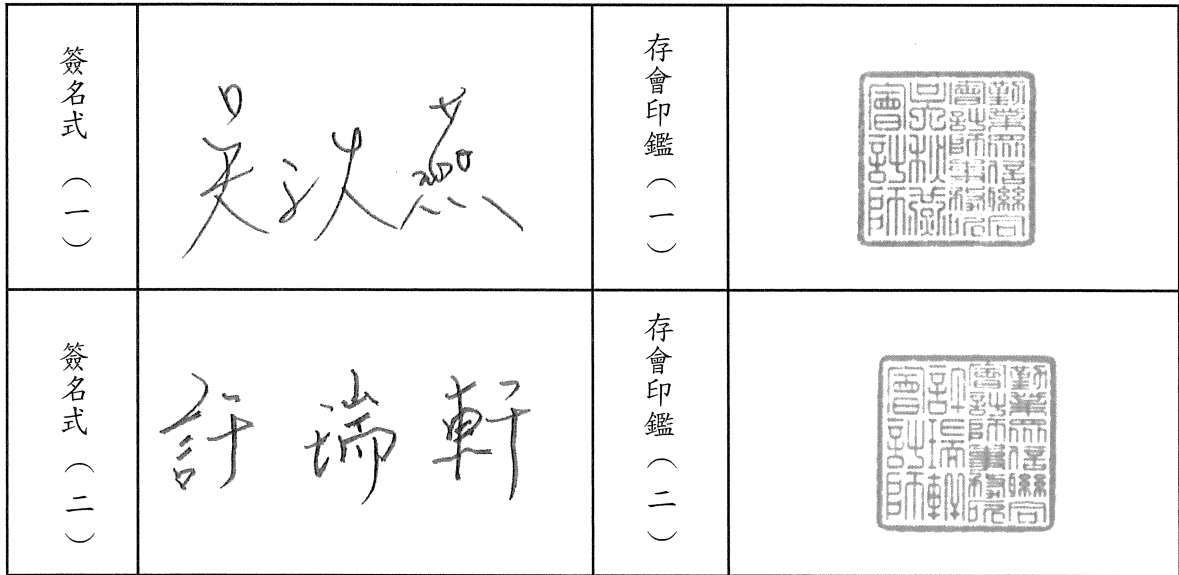 簽名式（一）
吳秋燕
存會印鑑（一）
勤業眾信聯合
會計師事務所
吳秋燕
會計師
簽名式（二）
許瑞軒
存會印鑑（二）
勤業眾信聯合
會計師事務所
許瑞軒
會計師